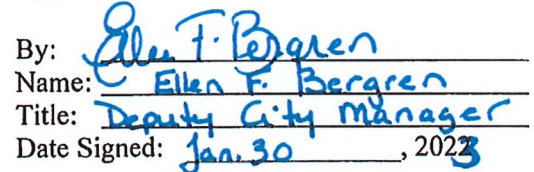 By: Ellen F. Bergren
Name: Ellen F. Bergren
Title: Deputy City Manager
Date Signed: Jan. 30, 2023